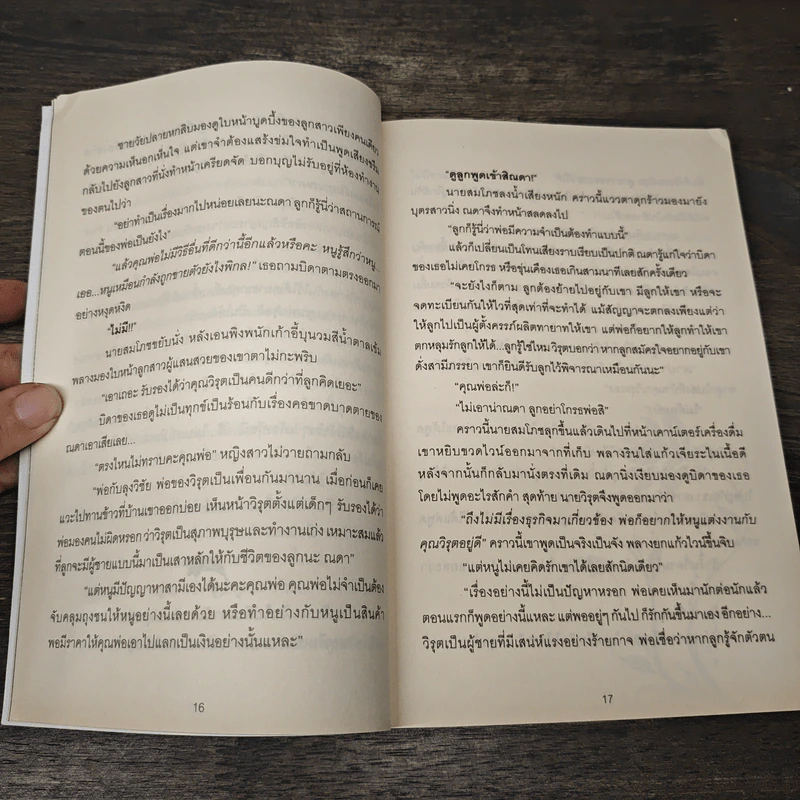 ชายวัยปลายหกสิบมองดูใบหน้าบูดบึ้งของลูกสาวเพียงคนเดียว
ด้วยความเห็นอกเห็นใจ แต่เขาจำต้องแสร้งข่มใจทำเป็นพูดเสียงขรึม
กลับไปยังลูกสาวที่นั่งทำหน้าเครียดจัด บอกบุญไม่รับอยู่ที่ห้องทำงาน
ของตนไปว่า
"อย่าทำเป็นเรื่องมากไปหน่อยเลยนะณดา ลูกก็รู้นี่ว่าสถานการณ์
ตอนนี้ของพ่อเป็นยังไง"
"แล้วคุณพ่อไม่มีวิธีอื่นที่ดีกว่านี้อีกแล้วหรือคะ หนูรู้สึกว่าหนู...
เออ...หนูเหมือนกำลังถูกขายตัวยังไงพิกล!" เธอถามบิดาตามตรงออกมา
อย่างหงุดหงิด
"ไม่มี!!"
นายสมโภชขยับนั่ง หลังเอนพิงพนักเก้าอี้บุนวมสีน้ำตาลเข้ม
พลางมองใบหน้าลูกสาวผู้แสนสวยของเขาตาไม่กะพริบ
"เอาเถอะ รับรองได้ว่าคุณวิรุตเป็นคนดีกว่าที่ลูกคิดเยอะ"
บิดาของเธอดูไม่เป็นทุกข์เป็นร้อนกับเรื่องคอขาดบาดตายของ
ณดาเอาเสียเลย...
"ตรงไหนไม่ทราบคะคุณพ่อ" หญิงสาวไม่วายถามกลับ
"พ่อกับลุงวิชัย พ่อของวิรุตเป็นเพื่อนกันมานาน เมื่อก่อนก็เคย
แวะไปทานข้าวที่บ้านเขาออกบ่อย เห็นหน้าวิรุตตั้งแต่เด็กๆ รับรองได้ว่า
พ่อมองคนไม่ผิดหรอก ว่าวิรุตเป็นสุภาพบุรุษและทำงานเก่ง เหมาะสมแล้ว
ที่ลูกจะมีผู้ชายแบบนี้มาเป็นเสาหลักให้กับชีวิตของลูกนะ ณดา"
"แต่หนูมีปัญญาหาสามีเองได้นะคะคุณพ่อ คุณพ่อไม่จำเป็นต้อง
จับคลุมถุงชนให้หนูอย่างนี้เลยด้วย หรือทำอย่างกับหนูเป็นสินค้า
พอมีราคาให้คุณพ่อเอาไปแลกเป็นเงินอย่างนั้นแหละ"
16
"ดูลูกพูดเข้าสิณดา!"
นายสมโภชลงน้ำเสียงหนัก คราวนี้แววตาดุกร้าวมองมายัง
บุตรสาวนิ่ง ณดาจึงทำหน้าสลดลงไป
"ลูกก็รู้นี่ว่าพ่อมีความจำเป็นต้องทำแบบนี้"
แล้วก็เปลี่ยนเป็นโทนเสียงราบเรียบเป็นปกติ ณดารู้แก่ใจว่าบิดา
ของเธอไม่เคยโกรธ หรือขุ่นเคืองเธอเกินสามนาทีเลยสักครั้งเดียว
"จะยังไงก็ตาม ลูกต้องย้ายไปอยู่กับเขา มีลูกให้เขา หรือจะ
จดทะเบียนกันให้ไวที่สุดเท่าที่จะทำได้ แม้สัญญาจะตกลงเพียงแต่ว่า
ให้ลูกไปเป็นผู้ตั้งครรภ์ผลิตทายาทให้เขา แต่พ่อก็อยากให้ลูกทำให้เขา
ตกหลุมรักลูกให้ได้...ลูกรู้ใช่ไหม วิรุตบอกว่า หากลูกสมัครใจอยากอยู่กับเขา
ดั่งสามีภรรยา เขาก็ยินดีรับลูกไว้พิจารณาเหมือนกันนะ"
"คุณพ่อล่ะก็!"
"ไม่เอาน่าณดา ลูกอย่าโกรธพ่อสิ"
คราวนี้นายสมโภชลุกขึ้นแล้วเดินไปที่หน้าเคาน์เตอร์เครื่องดื่ม
เขาหยิบขวดไวน์ออกมาจากที่เก็บ พลางรินใส่แก้วเจียระไนเนื้อดี
หลังจากนั้นก็กลับมานั่งตรงที่เดิม ณดานิ่งเงียบมองดูบิดาของเธอ
โดยไม่พูดอะไรสักคำ สุดท้าย นายวิรุตจึงพูดออกมาว่า
"ถึงไม่มีเรื่องธุรกิจมาเกี่ยวข้อง พ่อก็อยากให้หนูแต่งงานกับ
คุณวิรุตอยู่ดี" คราวนี้เขาพูดเป็นจริงเป็นจัง พลางยกแก้วไวน์ขึ้นจิบ
"แต่หนูไม่เคยคิดรักเขาได้เลยสักนิดเดียว"
"เรื่องอย่างนี้ไม่เป็นปัญหาหรอก พ่อเคยเห็นมานักต่อนักแล้ว
ตอนแรกก็พูดอย่างนี้แหละ แต่พออยู่ๆ กันไป ก็รักกันขึ้นมาเอง อีกอย่าง...
วิรุตเป็นผู้ชายที่มีเสน่ห์แรงอย่างร้ายกาจ พ่อเชื่อว่าหากลูกรู้จักตัวตน
17